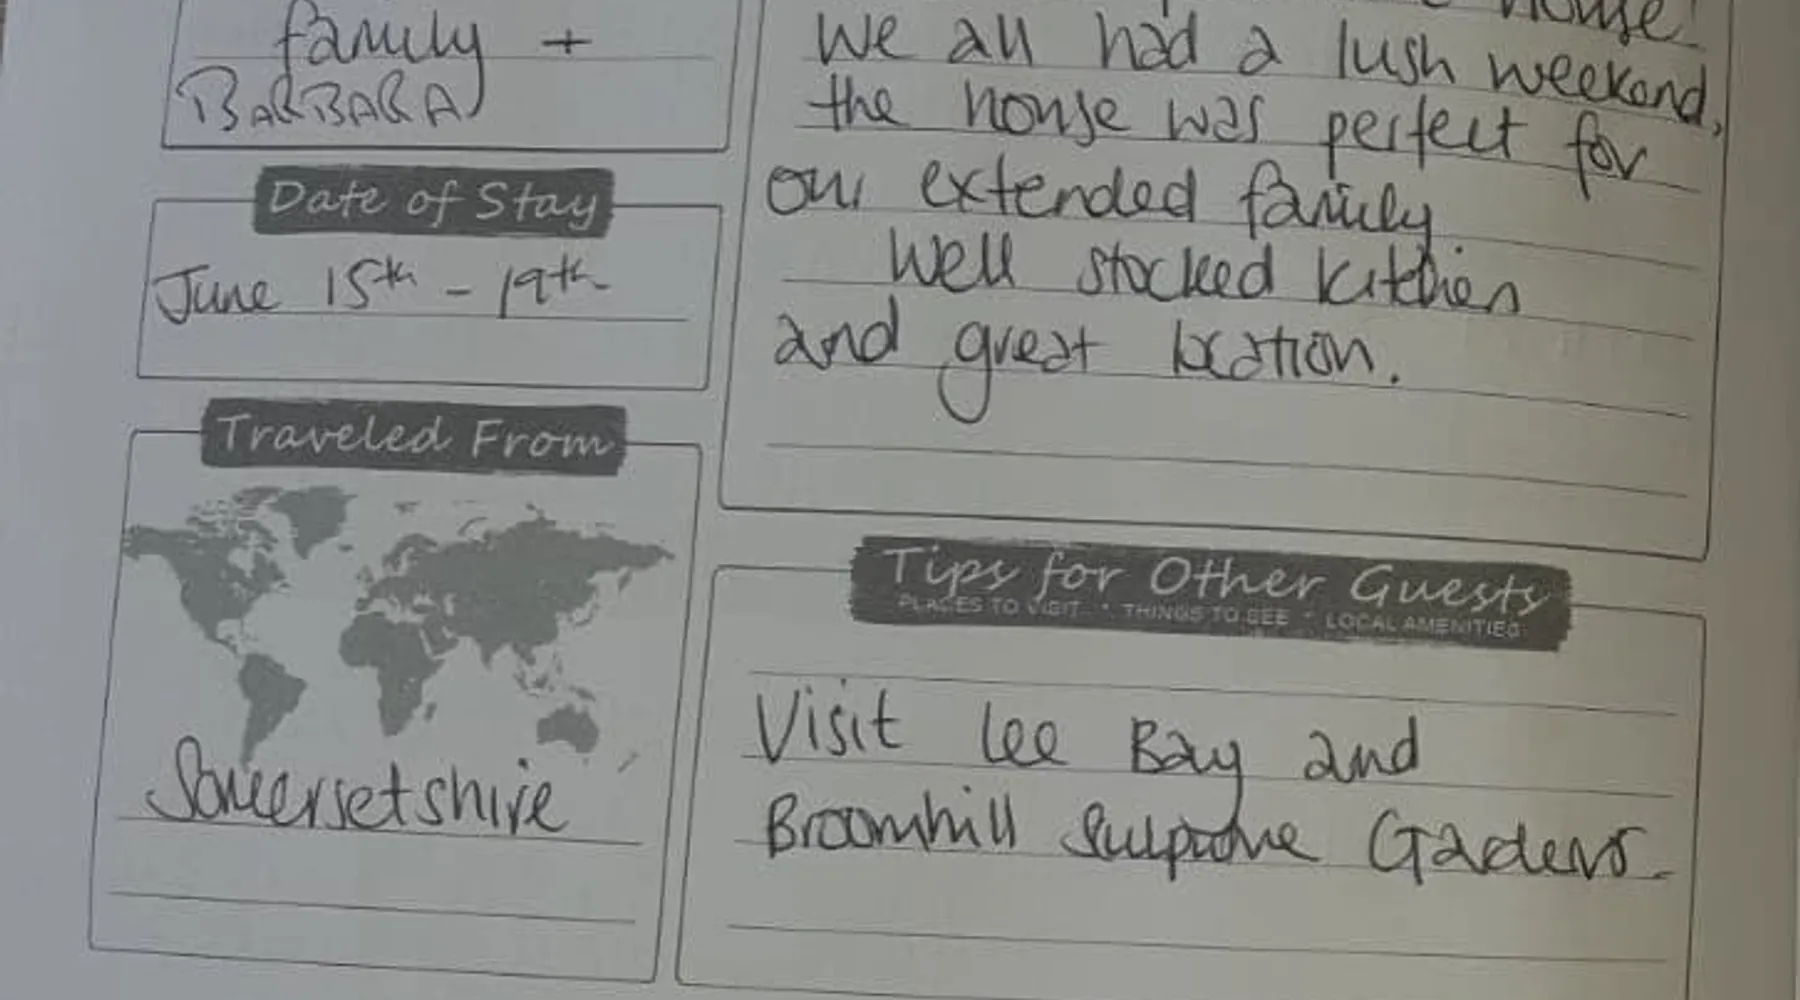 family +
BARBARA
Date of Stay
June 15th - 19th
Traveled From
Somersetshire
house!
We all had a lush weekend,
the house was perfect for
our extended family
Well stocked kitchen
and great location.
Tips for Other Guests
PLACES TO VISIT * THINGS TO SEE * LOCAL AMENITIES
Visit Lee Bay and
Broomhill Gardens.